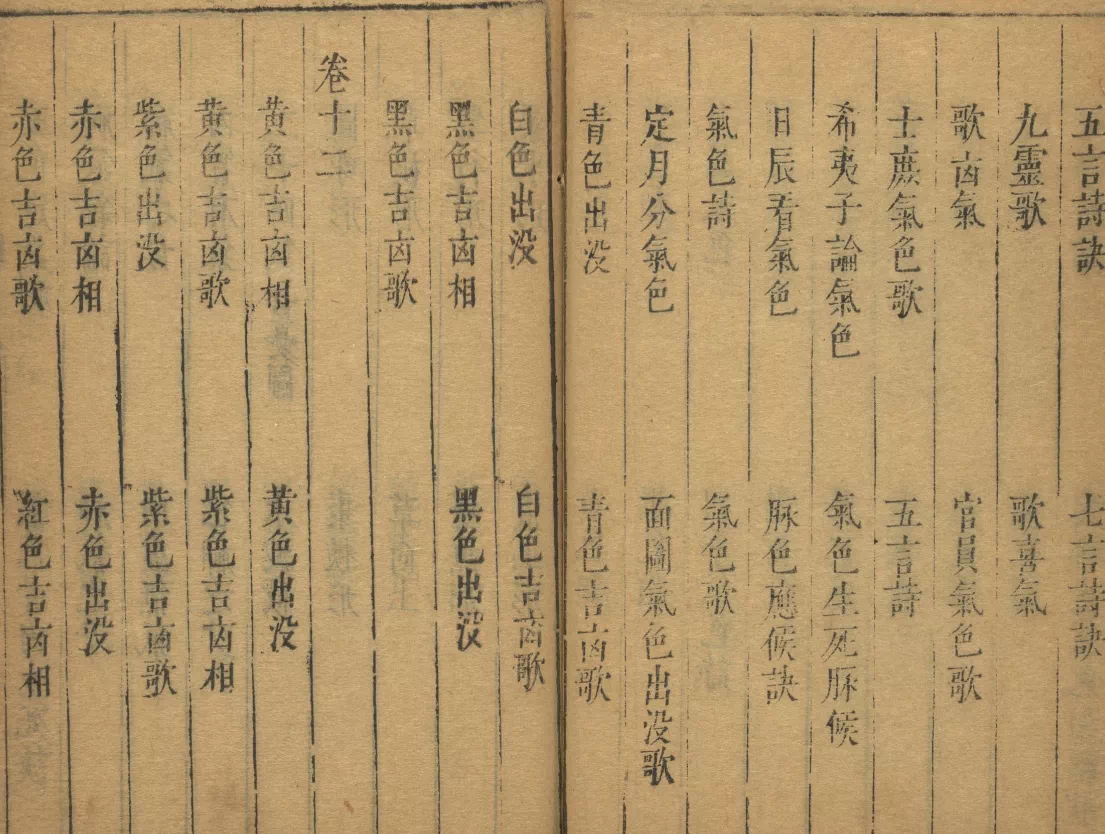 五言詩訣 七言詩訣
九靈歌 歌喜氣
歌㐫氣 官員氣色歌
士庶氣色歌 五言詩
希夷子論氣色 氣色生死脉候
日辰看氣色 脉色應候訣
氣色詩 氣色歌
定月分氣色 面圖氣色出没歌
青色出没 青色吉㐫歌
白色出没 白色吉㐫歌
黑色吉㐫相 黑色出没
黑色吉㐫歌
卷十二
黄色吉㐫相 黄色出没
黄色吉㐫歌 紫色吉㐫相
紫色出没 紫色吉㐫歌
赤色吉㐫相 赤色出没
赤色吉㐫歌 紅色吉㐫相